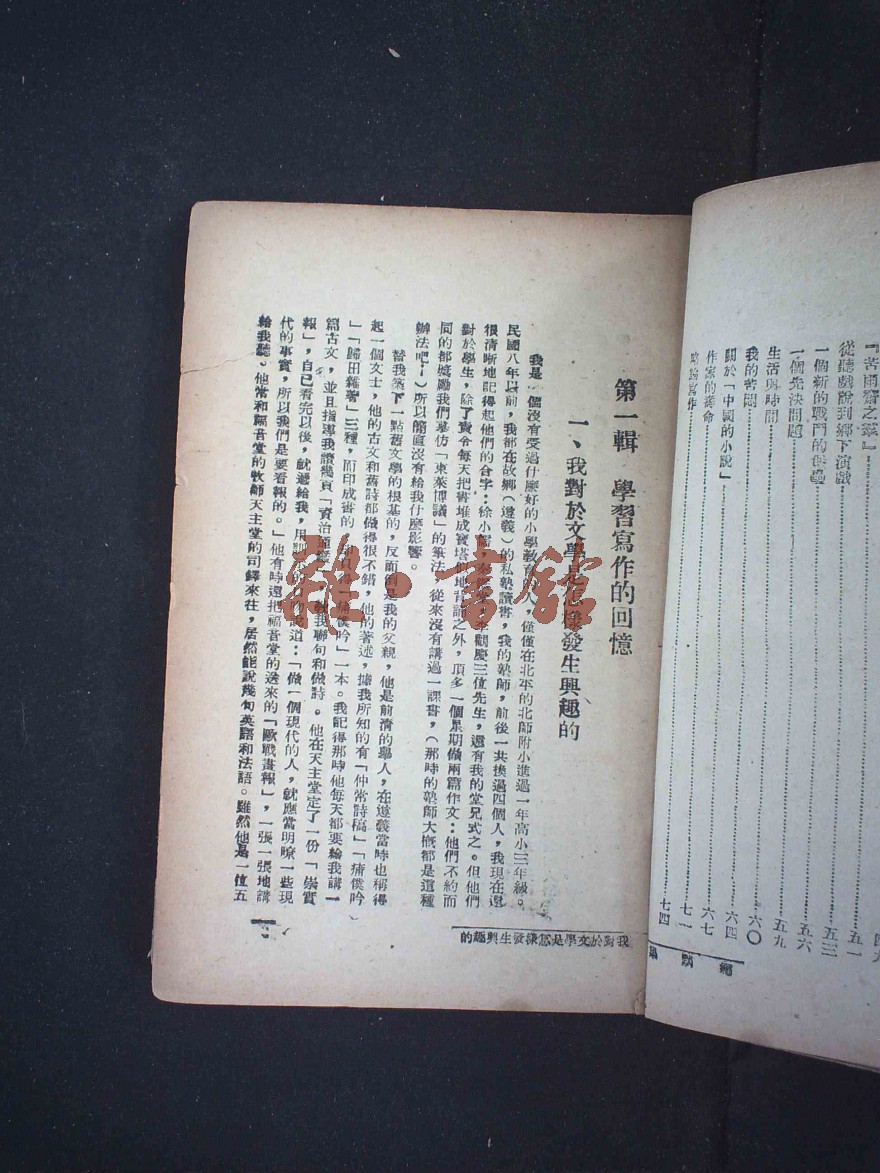 『苦雨齋之鍳』
從聽戲說到鄉下演戲……五一
一個新的戰鬥的保壘……五三
一個先決問題……五六
生活與時間……五九
我的苦悶……六〇
關於「中國的小說」……六四
作家的壽命……六七
略論寫作……七一
七四
第一輯　學習寫作的回憶
一、我對於文學是怎樣發生興趣的
我是一個沒有受過什麼好的小學教育的人，僅僅在北平的北師附小進過一年高小三年級。
民國八年以前，我都在故鄉（遵義）的私塾讀書，我的塾師，前後一共換過四個人，我現在還
很清晰地記得起他們的台字：徐小李觀慶三位先生，還有我的堂兄式之。但他們
對於學生，除了責令每天把書堆成寶塔似地背誦之外，頂多一個星期做兩篇作文：他們不約而
同的都勉勵我們摹仿「東萊博議」的筆法，從來沒有講過一課書，（那時的塾師大概都是這種
辦法吧！）所以簡直沒有給我什麼影響。
替我築下一點舊文學的根基的，反而倒是我的父親，他是前清的舉人，在遵義當時也稱得
起一個文士，他的古文和舊詩都做得很不錯，他的著述，據我所知的有「仲常詩稿」「痡僕吟
」「歸田雜著」三種，而印成書的却只得「痡僕吟」一本。我記得那時他每天都要給我講一
篇古文，並且指導我讀幾頁「資治通鑑」，教我聯句和做詩。他在天主堂定了一份「崇實
報」，自己看完以後，就遞給我，用說道：「做一個現代的人，就應當明瞭一些現
代的事實，所以我們是要看報的。」他有時還把福音堂的送來的「歐戰畫報」，一張一張地講
給我聽。他常和福音堂的牧師天主堂的司鐸來往，居然能說幾句英語和法語。雖然他是一位五
我對於文學是怎樣發生興趣的
一
雜·書館